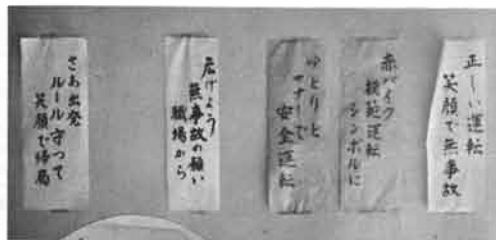 正しい運転
笑顔で無事故
赤バイク
模範運転
シンボルに
ゆとりと
マナーで
安全運転
広げよう
無事故の願い
職場から
さあ出発
ルール守って
笑顔で帰局